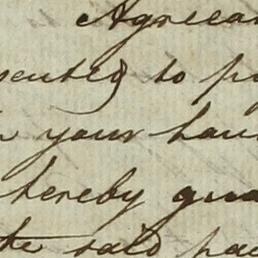 Agreea
sented to p
your han
hereby gua
the said pac